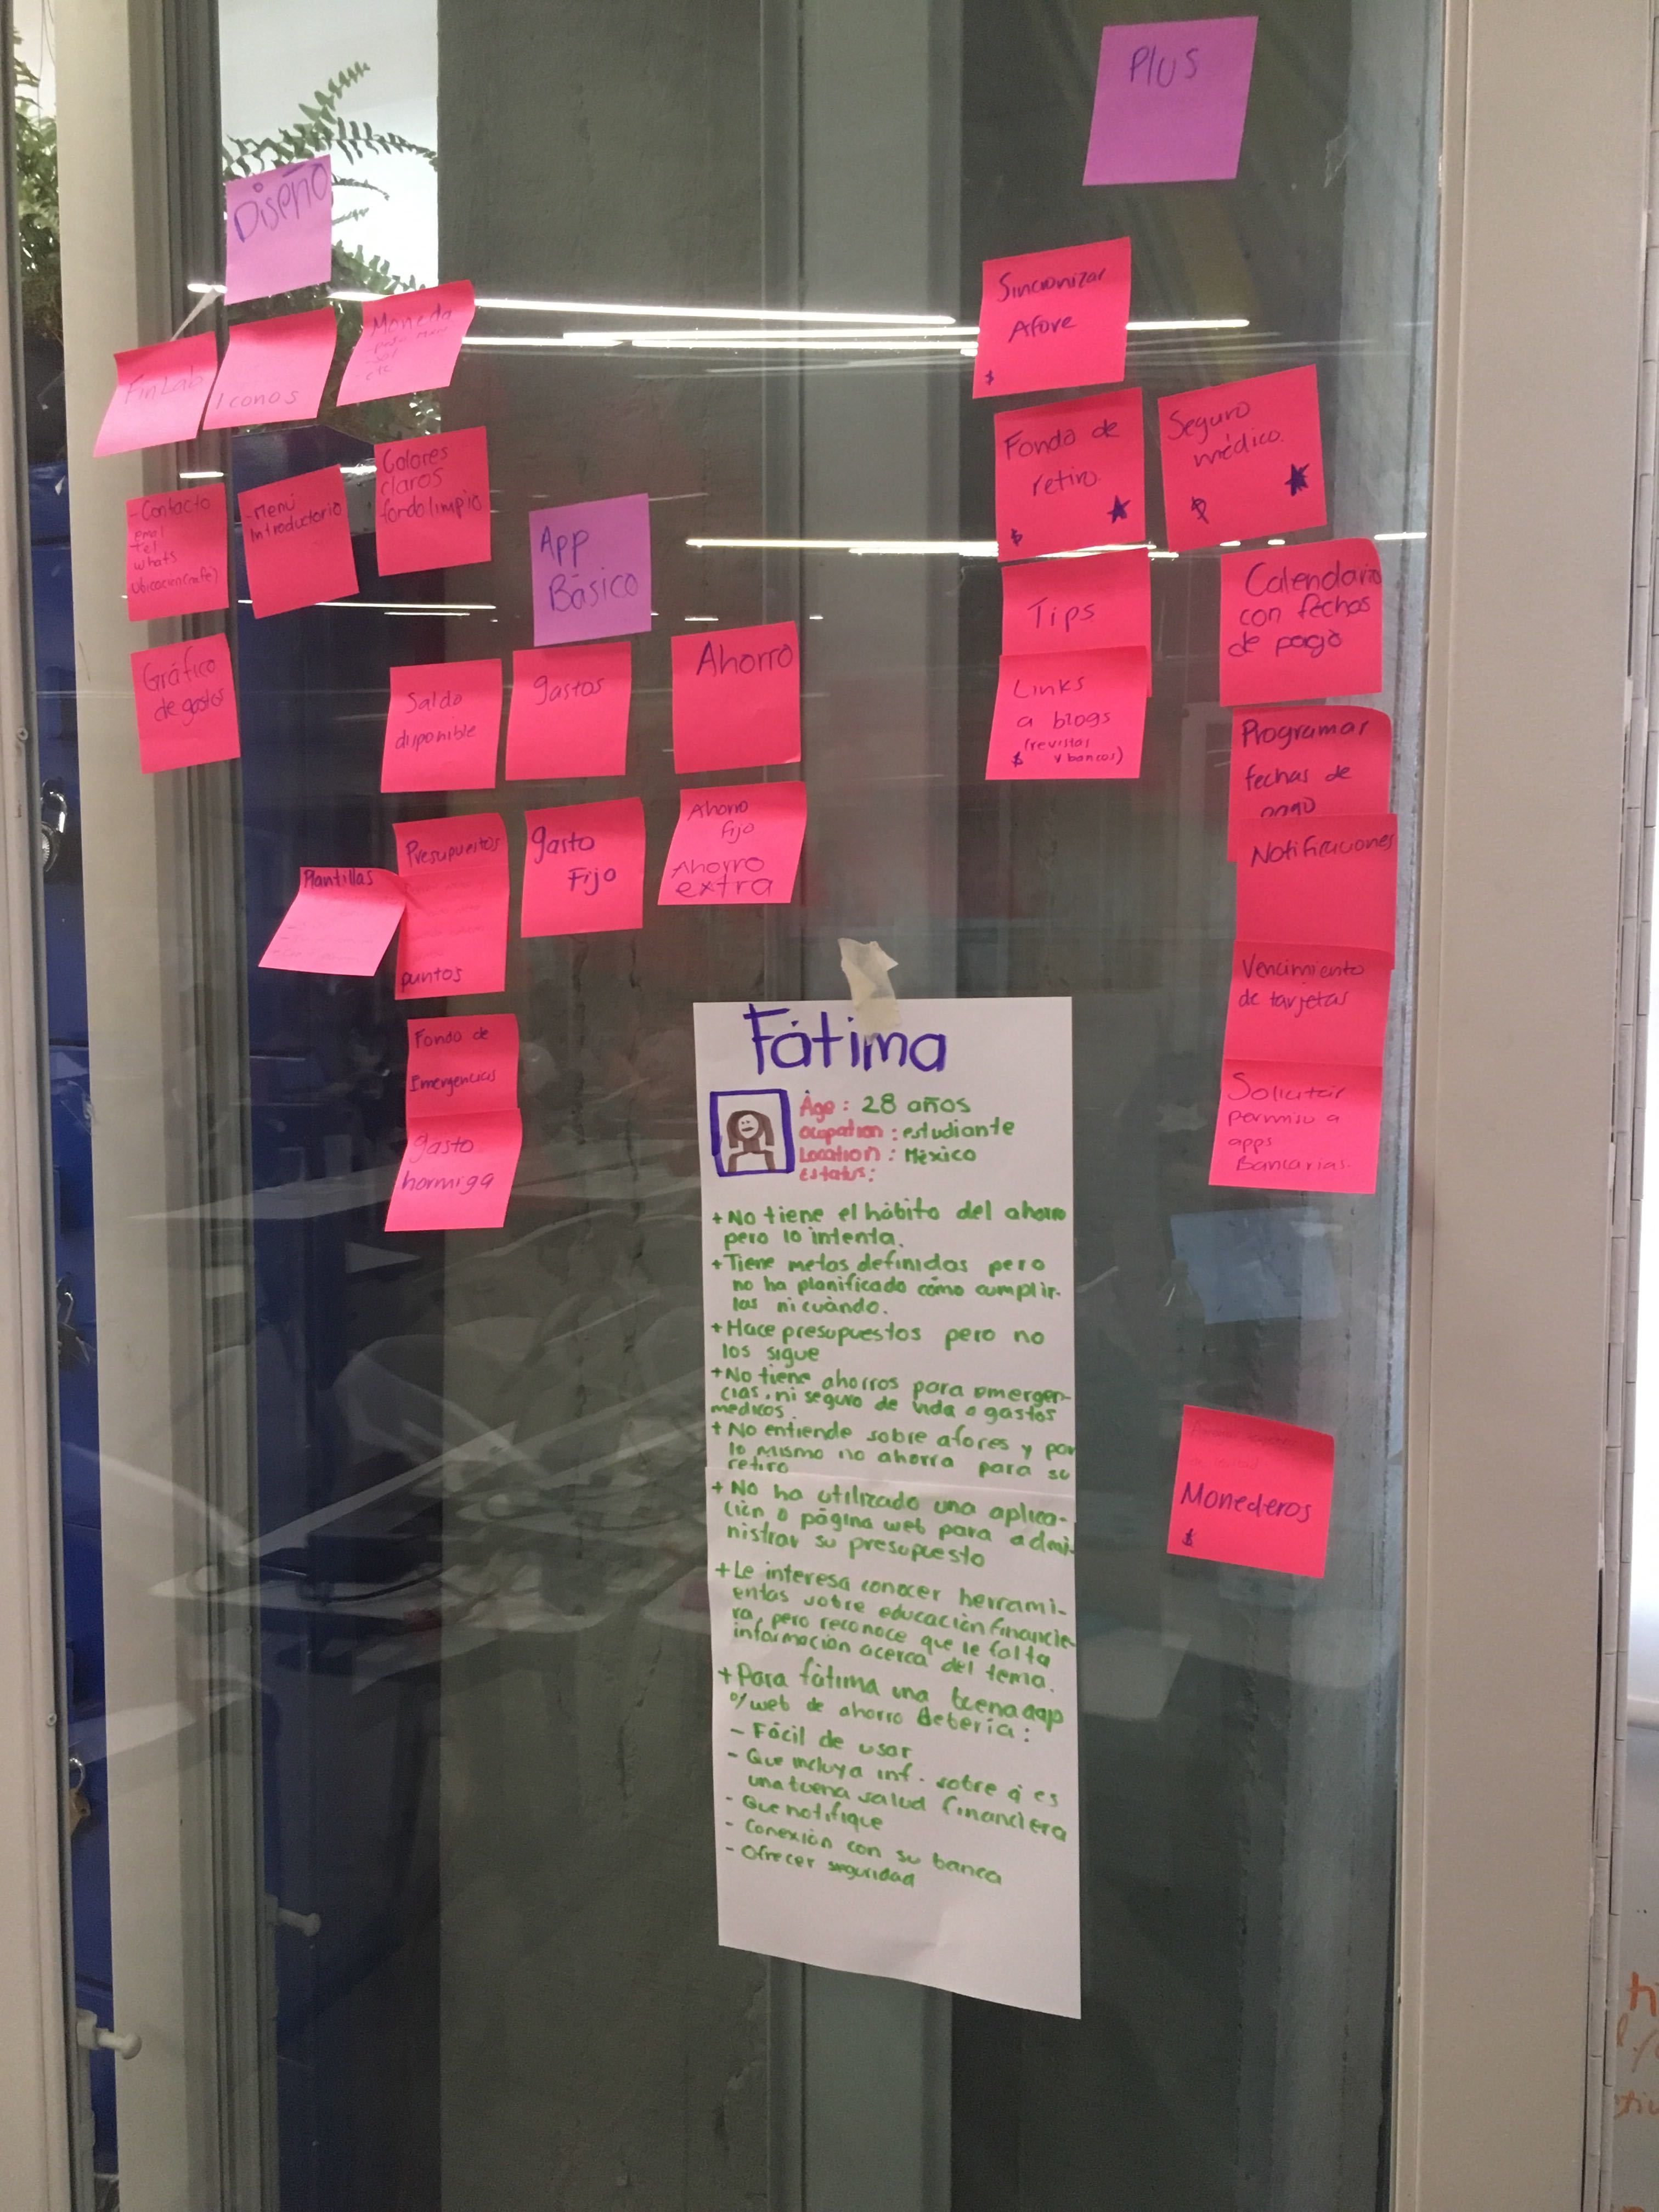 Diseño
FinLab
Iconos
Moneda
etc
-Contacto
Email
Tel
Whats
Ubicación (café)
-Menú
Introductorio
Colores
claros
fondo limpio
Gráfico
de gastos
App
Básico
Saldo
disponible
gastos
Ahorro
Plantillas
Presupuestos
puntos
gasto
Fijo
Ahorro
Fijo
Ahorro
extra
Fondo de
Emergencias
gasto
hormiga
Plus
Sincronizar
Afore
$
Fondo de
retiro
$
Seguro
médico.
$
Tips
Links
a blogs
(revistas
$ y bancos)
Calendario
con fechas
de pago
Programar
fechas de
pago
Notificaciones
Vencimiento
de tarjetas
Solicitar
permiso a
apps
Bancarias.
Monederos
$
Fátima
Age: 28 años
Ocupation: estudiante
Location: México
Estatus:
+ No tiene el hábito del ahorro
pero lo intenta.
+ Tiene metas definidas pero
no ha planificado cómo cumplir-
las ni cuándo.
+ Hace presupuestos pero no
los sigue
+ No tiene ahorros para emergen-
cias, ni seguro de vida o gastos
médicos.
+ No entiende sobre afores y por
lo mismo no ahorra para su
retiro
+ No ha utilizado una aplica-
ción o página web para admi-
nistrar su presupuesto
+ Le interesa conocer herrami-
entas sobre educación financie-
ra, pero reconoce que le falta
información acerca del tema.
+ Para fátima una buena app
o/web de ahorro Debería:
- Fácil de usar
- Que incluya inf. sobre q es
una buena salud financiera
- Que notifique
- Conexión con su banca
- Ofrecer seguridad